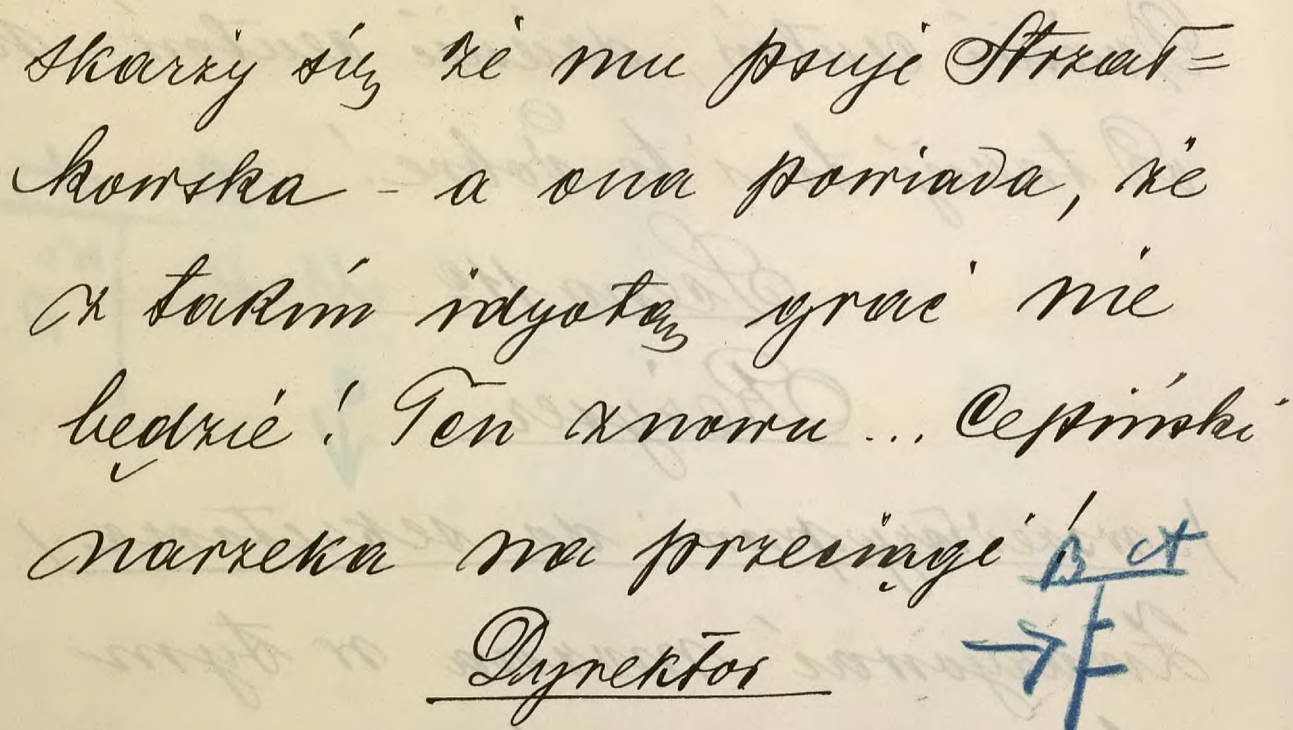 skarży się że mu psuje Strzał=
kowska - a ona powiada, że
z takim idyotą grać nie
będzie! Ten znowu... Cepiński
narzeka na przeciągi! B A
Dyrektor